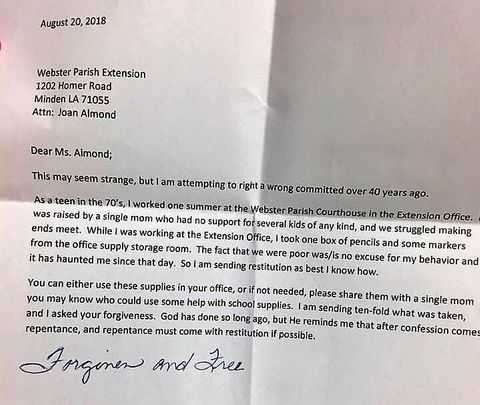 August 20, 2018
Webster Parish Extension
1202 Homer Road
Minden LA 71055
Attn: Joan Almond
Dear Ms. Almond;
This may seem strange, but I am attempting to right a wrong committed over 40 years ago.
As a teen in the 70's, I worked one summer at the Webster Parish Courthouse in the Extension Office.
was raised by a single mom who had no support for several kids of any kind, and we struggled making
ends meet. While I was working at the Extension Office, I took one box of pencils and some markers
from the office supply storage room. The fact that we were poor was/is no excuse for my behavior and
it has haunted me since that day. So I am sending restitution as best I know how.
You can either use these supplies in your office, or if not needed, please share them with a single mom
you may know who could use some help with school supplies. I am sending ten-fold what was taken,
and I asked your forgiveness. God has done so long ago, but He reminds me that after confession comes
repentance, and repentance must come with restitution if possible.
Forgiven and Free